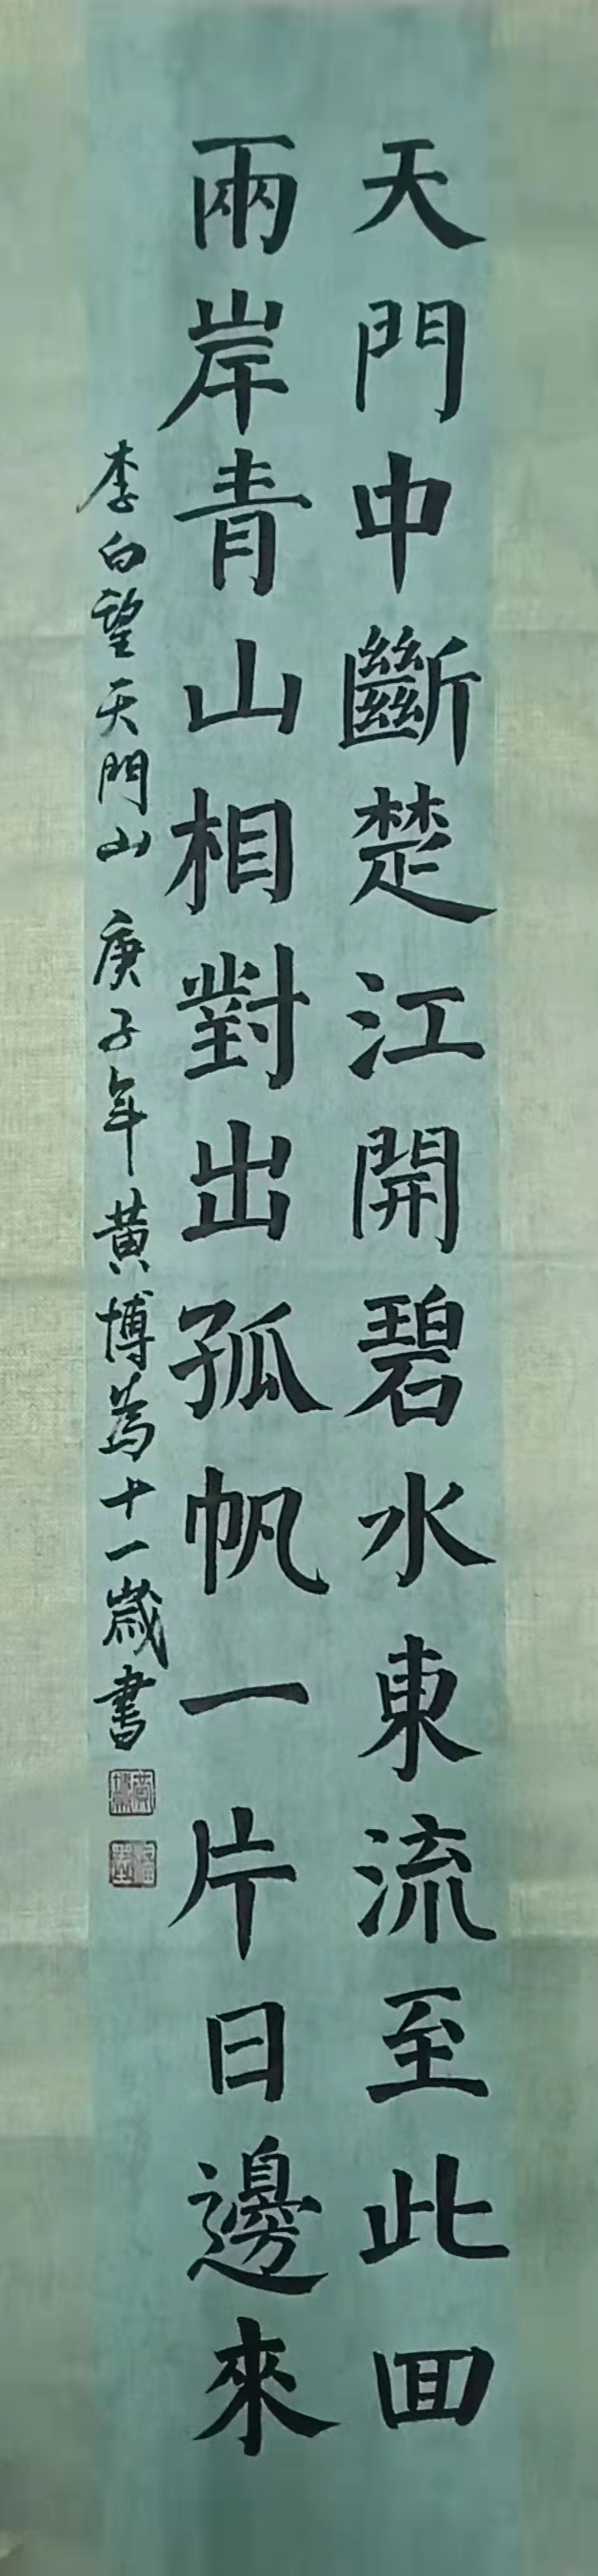 天門中斷楚江開碧水東流至此回
兩岸青山相對出孤帆一片日邊來
李白望天門山 庚子年黃博為十一歲書